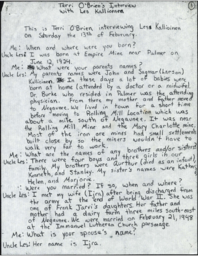 Terri O'Brien's Interview
with Les Kallioinen
This is Terri O'Brien, interviewing Les Kallioinen
on Sunday the 13th of February.
Me: When and where were you born?
Uncle Les: I was born at Empire Mine near Palmer on
June 12, 1924.
Me: What were your parents names?
Uncle Les: My parents names were John and Ingmar
Kallioinen. In those days a lot of babies were
born at home (attended by a doctor or a midwife).
Dr. Burke who resided in Palmer was the attending
physician. From there my mother and father moved
to Negaunee. We lived in town for a short time
before moving to Rolling Mill location which was
about a mile south of Negaunee. It was near
the Rolling Mill Mine and the Mary Charlotte mine.
Most of the iron ore mines had small settlements
built close by so the miners wouldn't have to
walk very far for work.
Me: What are the names of your brothers and/or sisters?
Uncle Les: There were four boys and three girls in our
family. My brothers were Arthur (died as an infant),
Kenneth, and Stanley. My sister's names were
Helen, and Marjorie.
Me: Were you married? If so, when and where?
Uncle Les: I met my wife (Ijra) after being discharged from
the army at the end of World War II. She was
one of Frank Jarvi's daughters. Her father and
mother had a dairy farm three miles south-most
of Negaunee. We were married on February 21, 1948
at the Immanuel Lutheran Church parsonage.
Me: What is your spouse's name?
Uncle Les: Her name is Ijra.